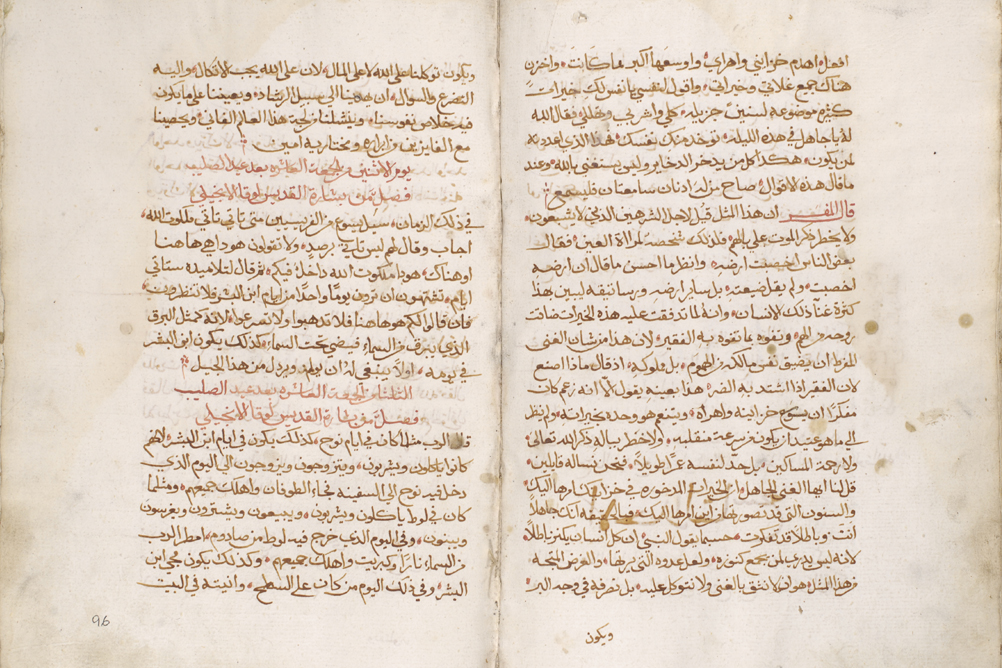 افعل، اهدم خزايني واهراي، واوسعها اكبر مما كانت، واخزن
هناك جمع غلاتي وخيراتي، واقول لنفسي يا نفس لك خيرات
كثيره موضوعه لسنين جزيله، كلي واشربي وهللي، فقال الله
له يا جاهل في هذه الليله، توخد منك نفسك، فهذا الذي اعددته
لمن يكون، هكذا كل من يدخر الدخاير، وليس يستغني بالله، وعند
ما قال هذه الاقوال صاح من له اذنان سامعتان فليسمع
قال المفسر ان هذا المثل قيل لاجل الشرهين الذين لا يشبعون،
ولا يخطر ذكر الموت على بالهم، فلذلك شخصه لمراة العين، فقال
بعض الناس اخصبت ارضه، وانظر ما احسن ما قال ان ارضه
اخصبت، ولم يقل ضيعته، بل ساير ارضه ورساتيقه ليبين هذا
كثرة غنا ذلك الانسان، وانه لما تدفقت عليه هذه الخيرات ضاقت
روحه من الهم، وتفوه بما تفوه به الفقير، لان هذا من شان الغنى
المفرط ان يضيق نفس مالكه من الهموم، بل ملوكيه، اذ قال ماذا اصنع
لان الفقير اذا اشتد به الضر، هذا بعينه يقول، الا انه زعم كان
مفكرا ان يوسع خزاينه واهراه، ويتمتع هو وحده بخيراته، ولم ينظر
الى ما هو عتيد ان يكون من سرعة منقلبه، ولا خطر بباله ذكر الله تعالى،
ولا رحمة المساكين، بل حدد لنفسه عمرا طويلا، فنحن نساله قايلين،
قل لنا ايها الغني الجاهل، الخيرات المدخوره في خزاينك امرها اليك،
والسنون التي قد تصورتها امرها اليك، فبالحقيقه انك جاهلا
انت، وباطلا قد تفكرت، حسبما يقول النبي ان كل انسان يكنز باطلا،
لانه ليس يدري لمن يجمع كنوزه، ولعل عدوه التي يرثها، والغرض المتجه
من هذا المثل هو ان لا نثق بالغنى ولا نتوكل عليه، بل نصرفه في وجه البر،
ويكون
ويكون توكلنا على الله لا على المال، لان على الله يجب الاتكال، واليه
التضرع والسوال، ان يهدينا الى سبيل الرشاد، ويعيننا على ما يكون
فيه خلاص نفوسنا، وينشلنا من لجة هذا العالم الفاني، ويحصينا
مع الفايزين من ابراره ومختاريه امين
يوم الاثنين من الجمعه العاشره بعد عيد الصليب
فصل من بشارة القديس لوقا الانجيلي
في ذلك الزمان، سيل يسوع من الفريسيين متى ياتي تاتي ملكوت الله،
اجاب وقال لهم ليس تاتي برصد، ولا تقولون هوذا هي هاهنا
او هناك، هوذا ملكوت الله داخل فيكم، ثم قال لتلاميذه ستاتي
ايام، تشتهون ان ترون يوما واحدا من ايام ابن البشر فلا تنظرون،
فان قالوا لكم هوذا هاهنا فلا تذهبوا ولا تسرعوا، لانه كمثل البرق
الذي يبرق من السماء فيضي تحت السماء، كذلك يكون ابن البشر
في يومه، اولا ينبغي له ان يولم ويرذل من هذا الجيل
الثلثاء من الجمعه العاشره بعد عيد الصليب
فصل من بشارة القديس لوقا الانجيلي
قال الرب مثلما كان في ايام نوح، كذلك يكون في ايام ابن البشر، لانهم
كانوا ياكلون ويشربون، ويتزوجون ويزوجون الى اليوم الذي
دخل فيه نوح الى السفينه فجاء الطوفان واهلك جميعهم، ومثلما
كان في لوط ياكلون ويشربون، ويبيعون ويشترون، ويغرسون
ويبنون، وفي اليوم الذي خرج فيه لوط من صادوم، امطر الرب
من السماء نارا وكبريت واهلك جميعهم، وكذلك يكون مجي ابن
البشر، وفي ذلك اليوم من كان على السطح، وانيته في البيت
96